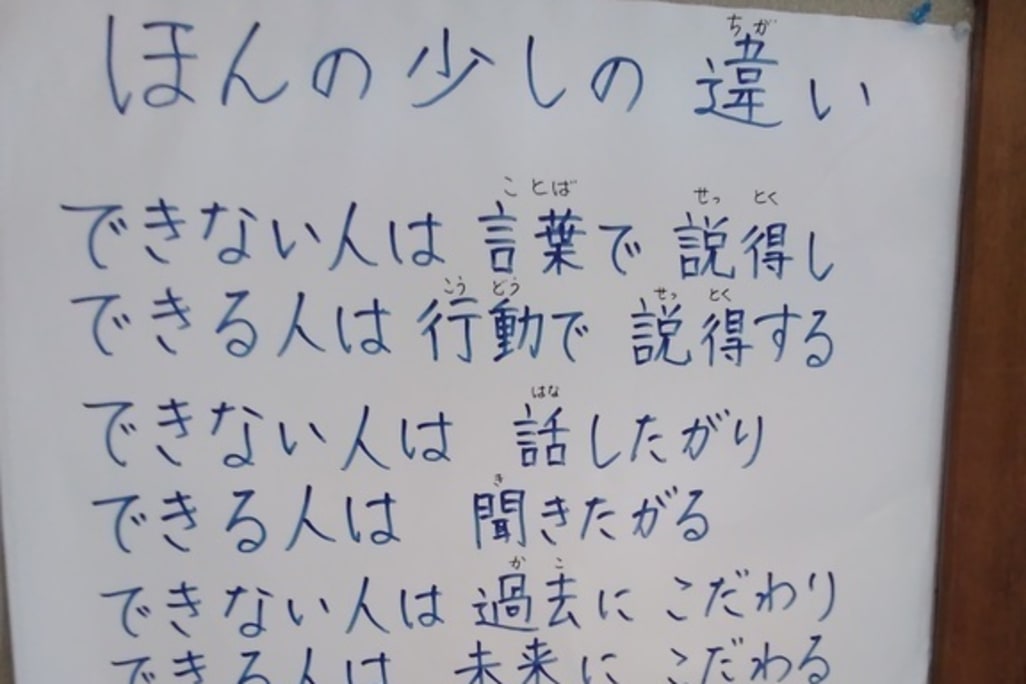 ほんの少しの違い
できない人は言葉で説得し
できる人は行動で説得する
できない人は話したがり
できる人は聞きたがる
できない人は過去にこだわり
できる人は未来にこだわる